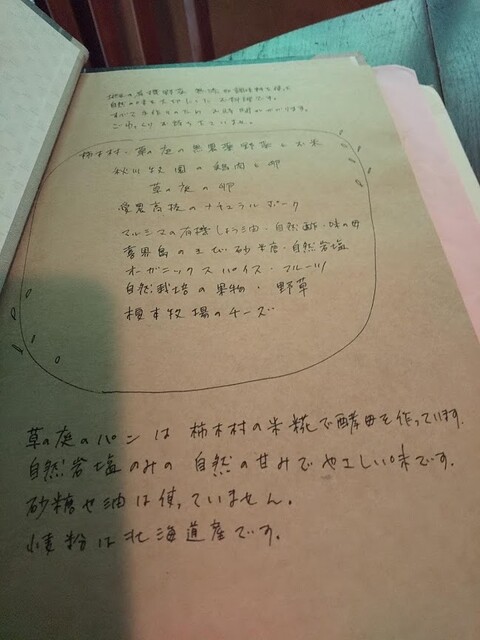 地元の有機野菜 無添加調味料を使い
自然の味を大切にしたお料理です。
すべて手作りのためお時間がかかります。
ごゆっくりお待ち下さいませ。
柿木村、草の庭の無農薬野菜とお米
秋川牧園の鶏肉と卵
草の庭の卵
愛農高校のナチュラルポーク
マルシマの有機しょう油・自然酢・味の母
喜界島のきび砂糖・自然岩塩
オーガニックスパイス・フルーツ
自然栽培の果物・野草
榎本牧場のチーズ
草の庭のパンは柿木村の米糀で酵母を作っています。
自然岩塩のみの自然の甘みでやさしい味です。
砂糖や油は使っていません。
小麦粉は北海道産です。